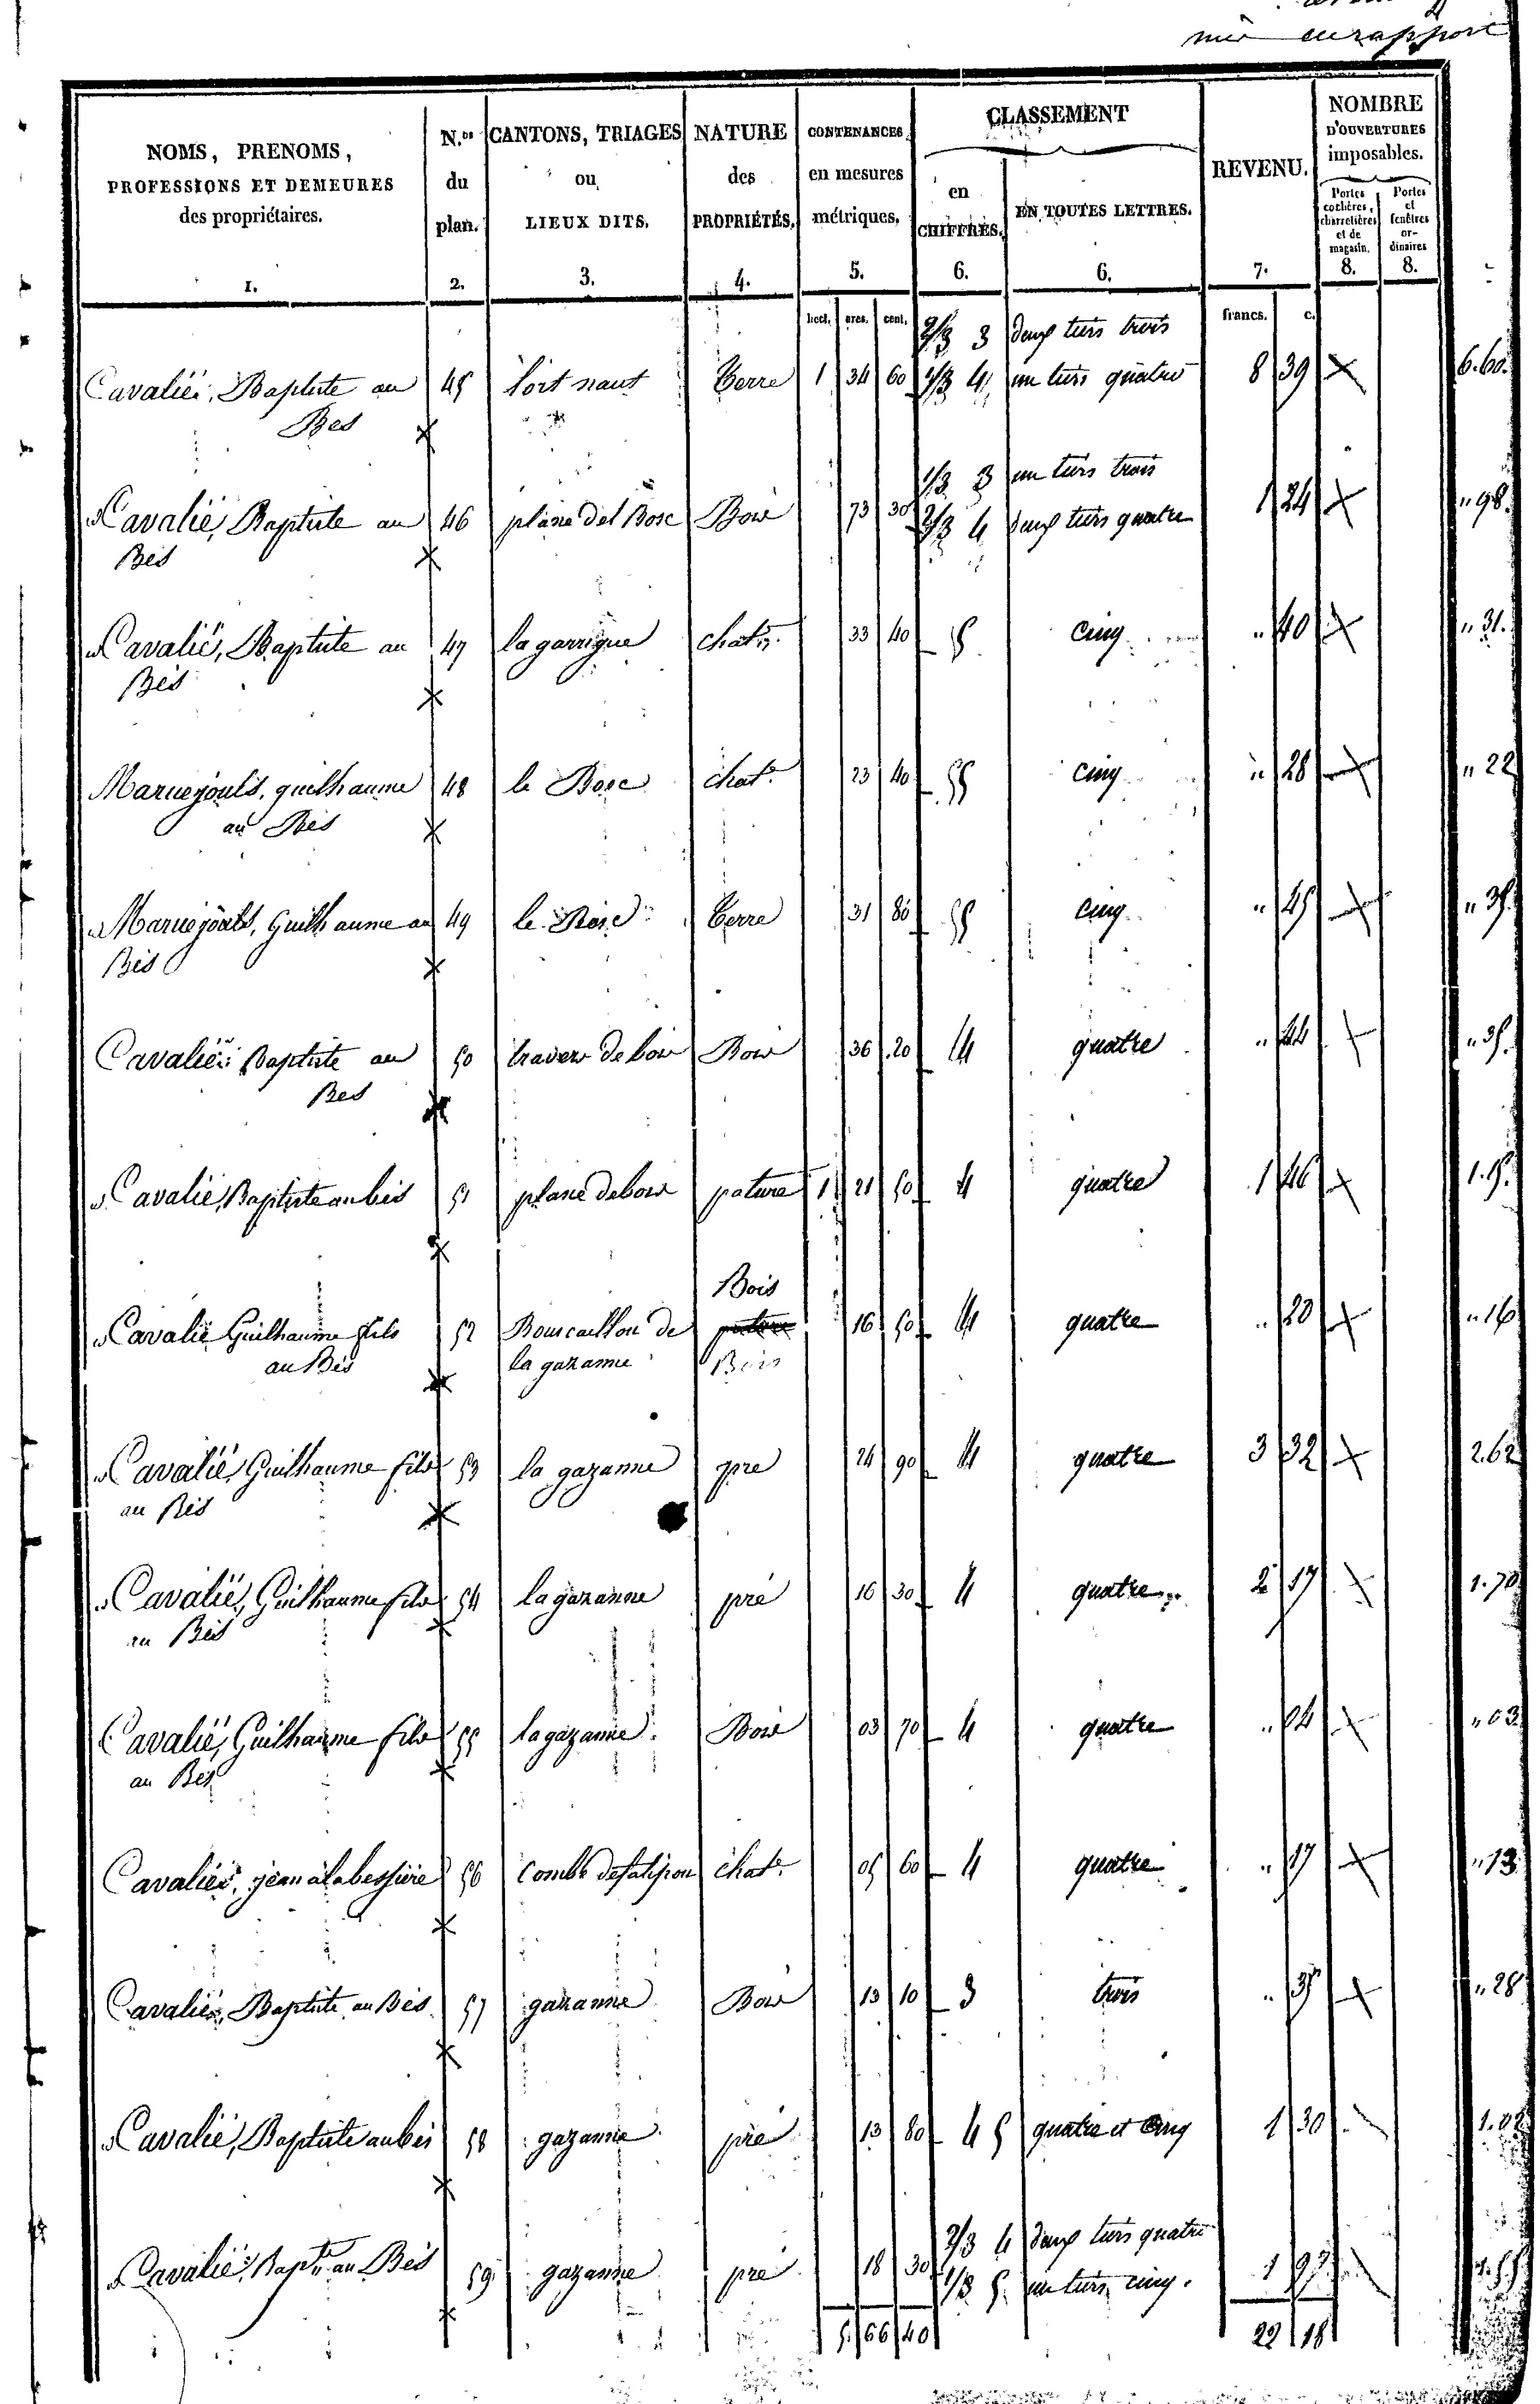 mis en rapport
NOMS, PRENOMS,
PROFESSIONS ET DEMEURES
des propriétaires.
1.
N.os
du
plan.
2.
CANTONS, TRIAGES
ou
LIEUX DITS.
3.
NATURE
des
PROPRIÉTÉS.
4.
CONTENANCES
en mesures
métriques.
5.
CLASSEMENT
en
CHIFFRES.
6.
EN TOUTES LETTRES.
6.
REVENU.
7.
NOMBRE
D'OUVERTURES
imposables.
Portes
cochères,
charretières
et de
magasin.
8.
Portes
et
fenêtres
or-
dinaires
8.
hect. ares. cent. francs. c.
2/3 3 deux tiers trois
Cavalié, Baptiste au 45 lort haut Terre 1 34 60 1/3 4 un tiers quatre 8 39 6.60.
Bes
1/3 3 un tiers trois
Cavalié, Baptiste au 46 plane del Bosc Bois 73 30 2/3 4 deux tiers quatre 1 24 " 98.
Bes
Cavalié, Baptiste au 47 la garrigue chat.r 33 40 5 cinq " 40 " 31.
Bes
Maruejouls, guilhaume 48 le Bosc chat.r 23 40 5 cinq " 28 " 22
au Bes
Maruejouls, Guilhaume au 49 le Bosc Terre 31 80 5 cinq " 45 " 35.
Bes
Cavalié Baptiste au 50 travers de bois Bois 36 20 4 quatre " 44 " 35.
Bes
Cavalié, Baptiste au bes 51 plane de bois pature 1 21 50 4 quatre 1 46 1.15.
Bois
Cavalié Guilhaume fils 52 Bouscaillou de pature 16 50 4 quatre " 20 " 16
au Bes la gazanne Bois
Cavalié, Guilhaume fils 53 la gazanne pre 24 90 4 quatre 3 32 2.62
au Bes
Cavalié, Guilhaume fils 54 la gazanne pré 16 30 4 quatre 2 17 1.70
au Bes
Cavalié, Guilhaume fils 55 la gazanne Bois 03 70 4 quatre " 04 " 03
au Bes
Cavalié, jean à la bessiere 56 Combe chat.r 05 60 4 quatre " 17 " 13
Cavalié, Baptiste au Bes 57 gazanne Bois 13 10 3 trois " 35 " 28
Cavalié, Baptiste au bes 58 gazanne pré 13 80 4 5 quatre et Cinq 1 30 1.02
2/3 4 deux tiers quatre
Cavalié, Bapt.te au Bes 59 gazanne pré 18 30 1/3 5 un tiers cinq. 1 97 1.55
5 66 40 22 18